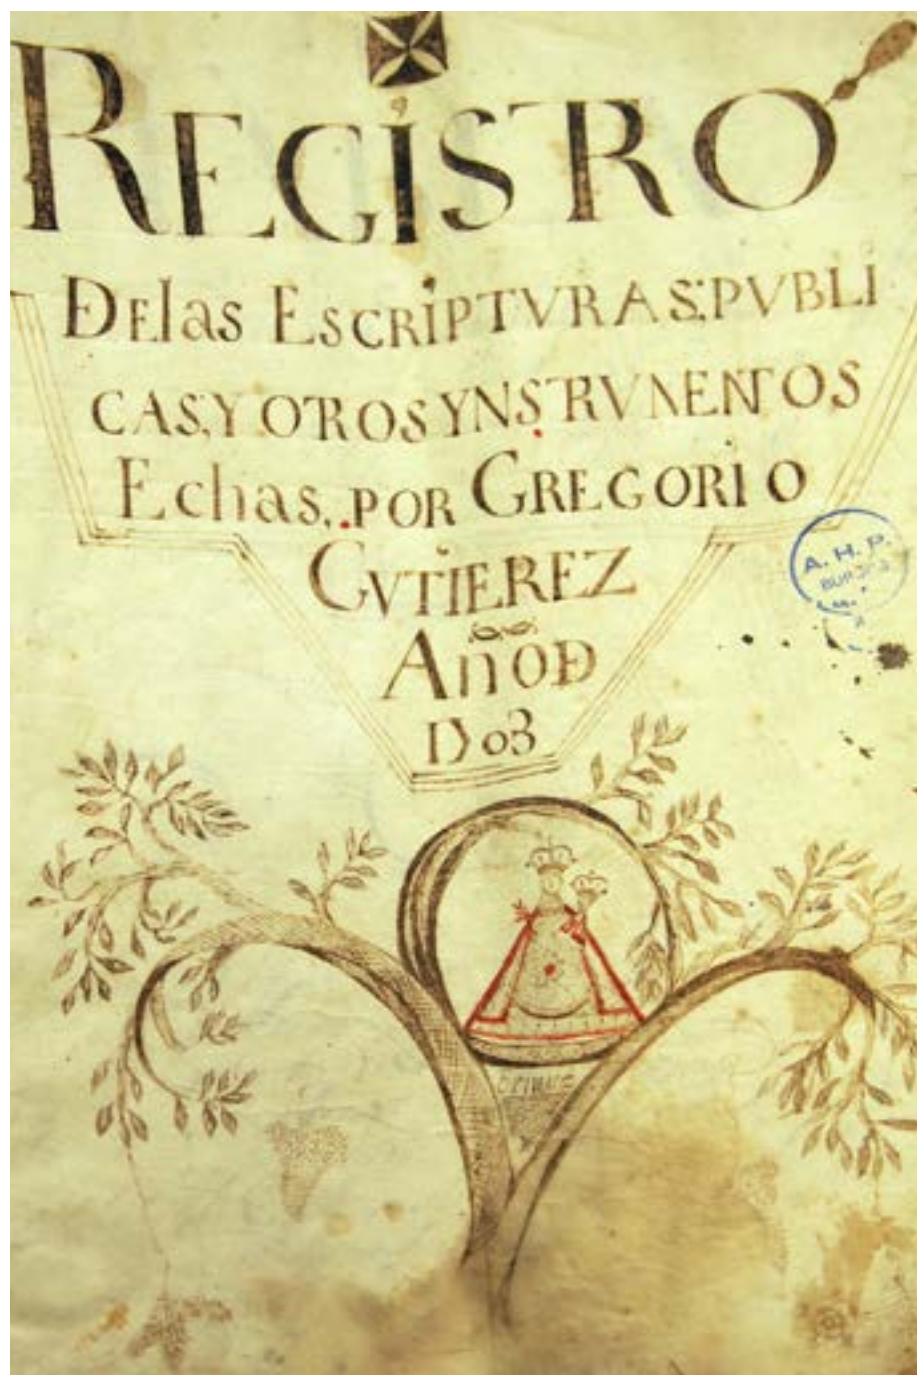 REGISTRO
DElas ESCRIPTVRAS,PVBLI
CAS,Y OTROS YNSTRVMENTOS
Echas, POR GREGORIO
GVTIEREZ
AñODE
1703
A. H. P.
BURGOS